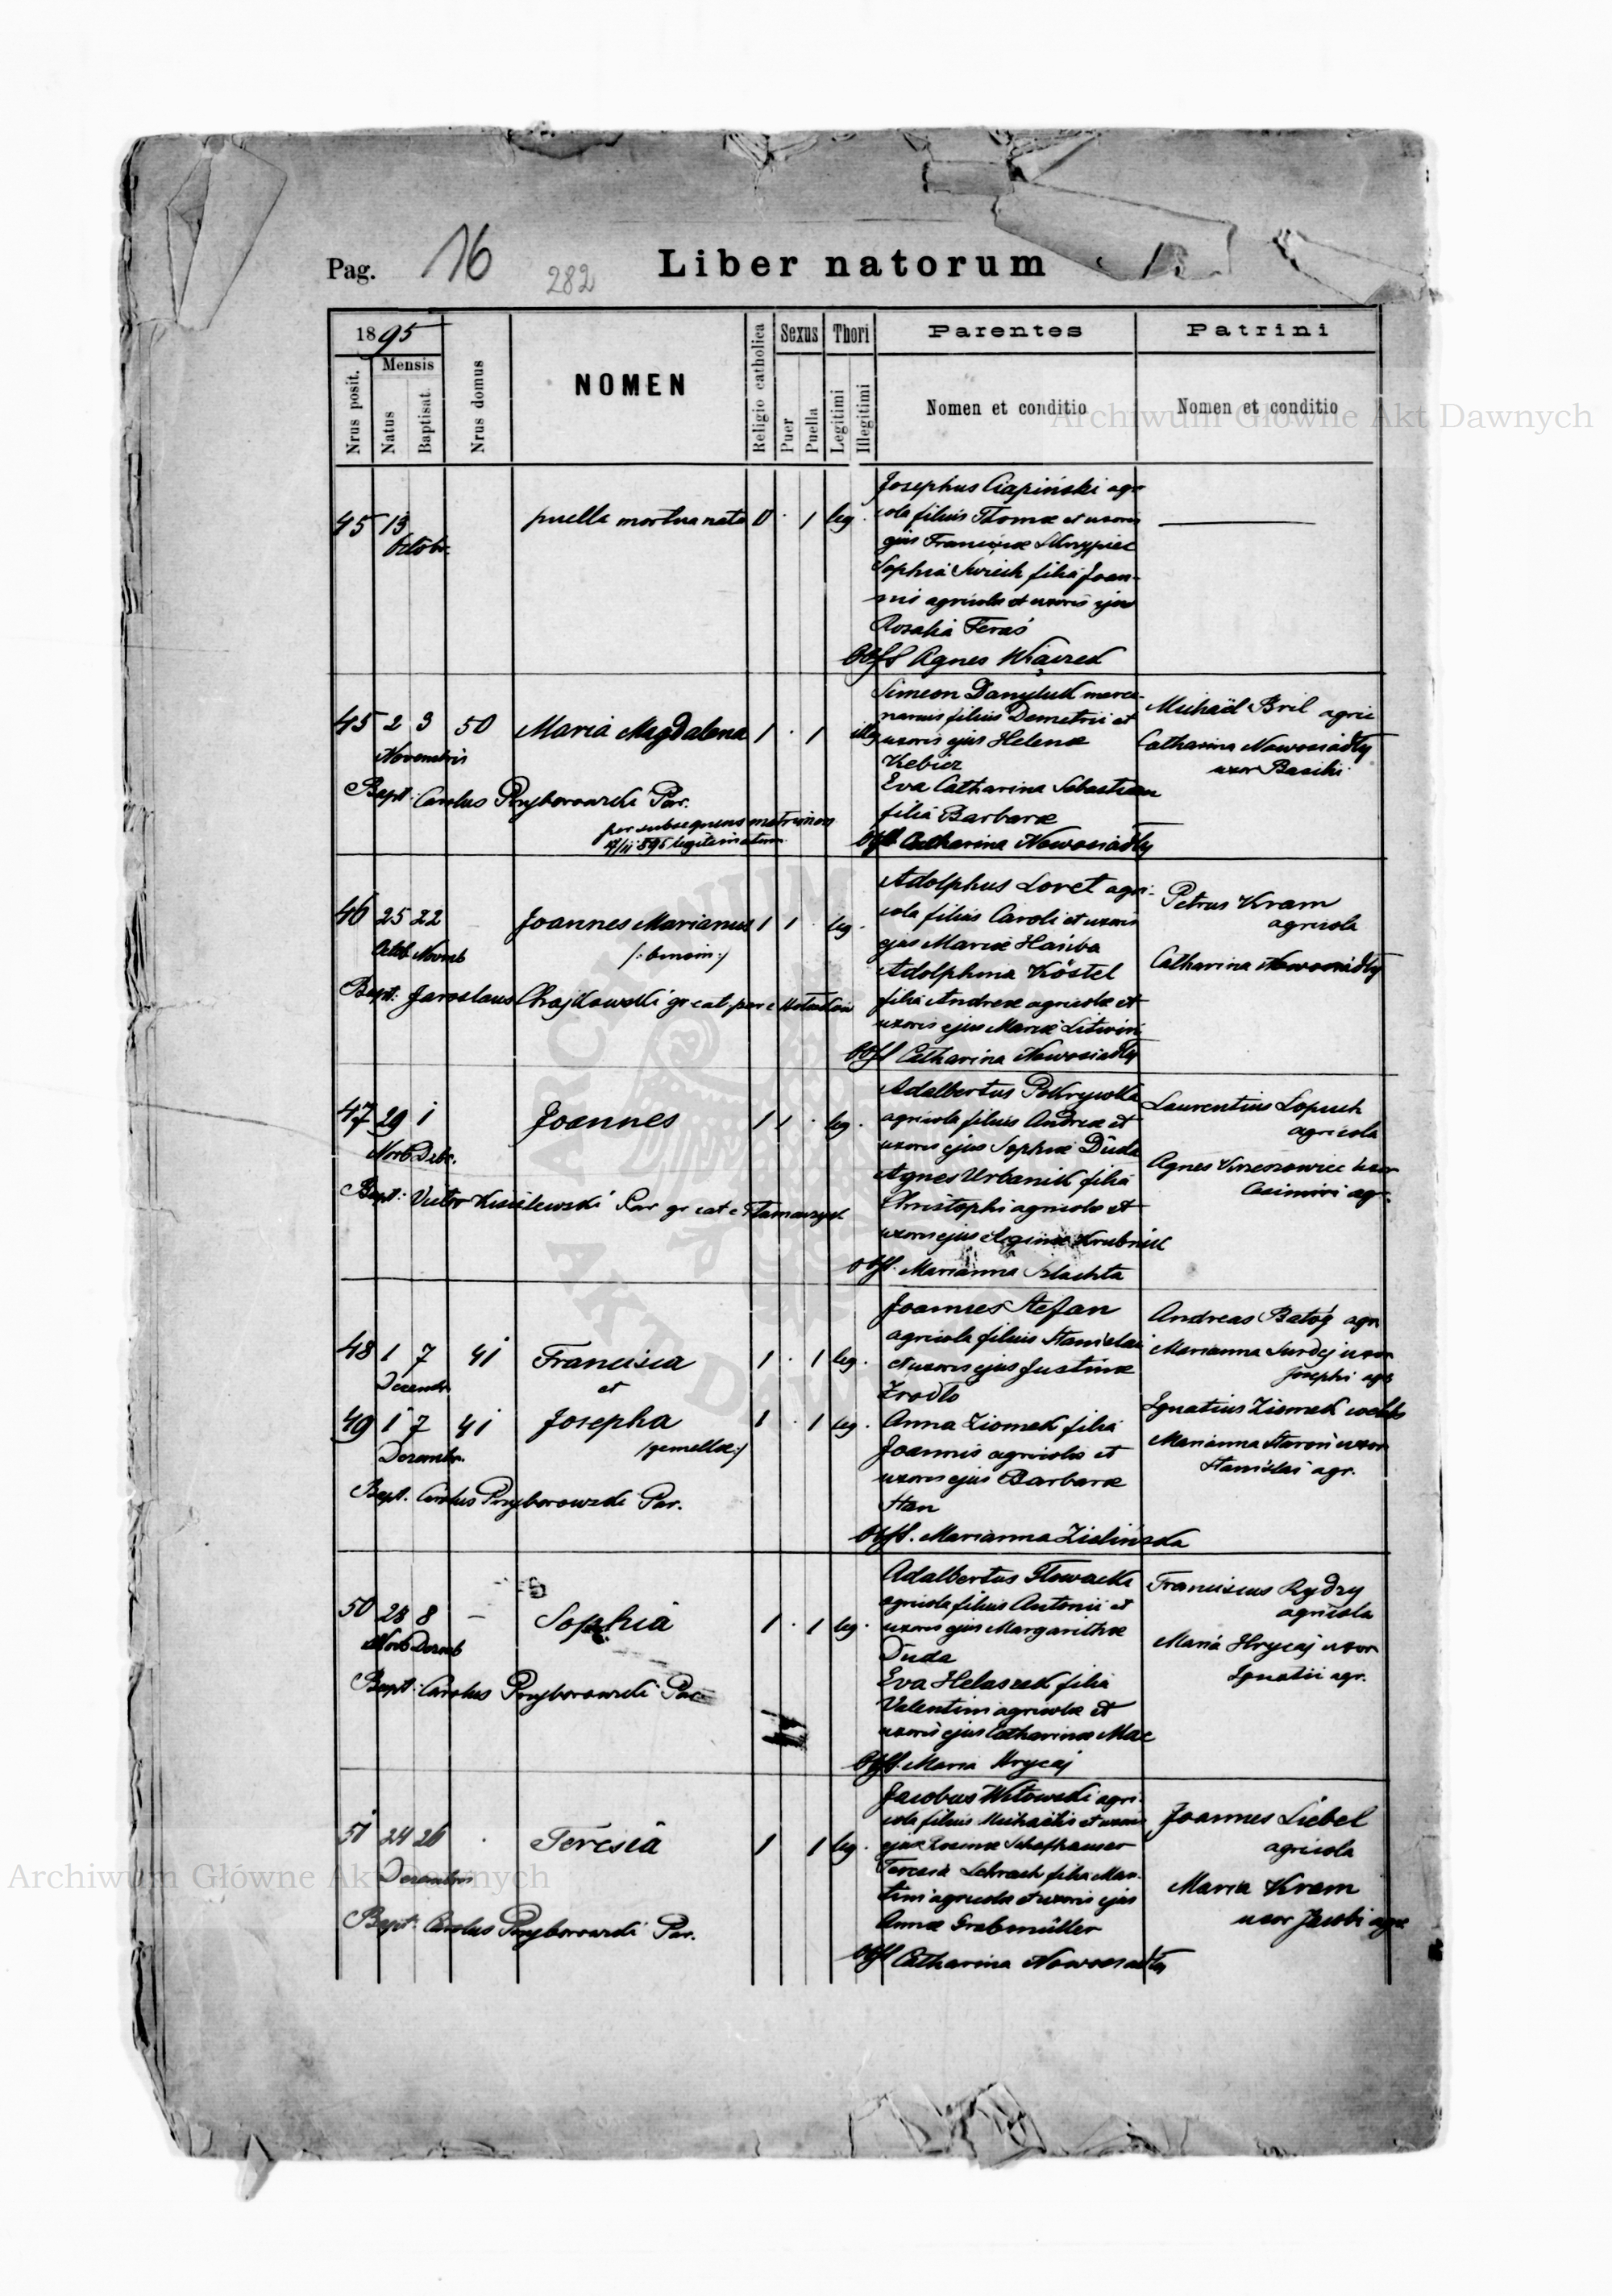 Pag. 16 282 Liber natorum
1895
Mensis
Nrus posit.
Natus
Baptisat.
Nrus domus
NOMEN
Religio catholica
Sexus
Puer
Puella
Thori
Legitimi
Illegitimi
Parentes
Nomen et conditio
Patrini
Nomen et conditio
Archiwum Główne Akt Dawnych
Josephus Ciapiński agri-
45 13 puella mortua nata 0 · 1 leg. cola filius Thomæ et uxoris
Octobr. ejus Franciscæ
Sophia filia Joan-
nis agricolæ et uxoris ejus
Rosalia Feraś
Obst Agnes Wiącek
Simeon Danyluk merce-
45 2 3 50 Maria Magdalena 1 · 1 illeg. narius filius Demetrii et
Novembris uxoris ejus Helenæ
Kebicz
Bapt: Carolus Przyborowski Par. Eva Catharina Sebastian
per subsequens matrimon filia Barbaræ
legitimatum
Obst. Catharina Nowosiadły
Michaël Bril agric
Catharina Nowosiadły
uxor Basilii
Adolphus Loret agri-
46 25 22 Joannes Marianus 1 1 · leg. cola filius Caroli et uxoris
Octob Novmb (:binom:) ejus Mariæ
Adolphina Köstel
Bapt: Jaroslaus Chajkowski gr cat par e filia Andreæ agricolæ et
uxoris ejus Mariæ Litwin
Obst Catharina Nowosiadły
Petrus Kram
agricola
Catharina Nowosiadły
Adalbertus Pokrywka
47 29 1 Joannes 1 1 · leg. agricola filius Andreæ et
Novb Debr. uxoris ejus Sophiæ Duda
Agnes Urbanik filia
Bapt: Victor Kisielewski Par gr cat e Christophi agricolæ et
uxoris ejus Reginæ
Obst. Marianna Szlachta
Laurentius Lopuch
agricola
Agnes Krzeszowiec uxor
Casimiri agr.
Joannes Stefan
48 1 7 41 Francisca 1 · 1 leg. agricola filius Stanislai
Decembr. et et uxoris ejus Justinæ
Zrodło
49 1 7 41 Josepha 1 · 1 leg. Anna Ziomek filia
Decembr. (gemellæ:) Joannis agricolæ et
uxoris ejus Barbaræ
Bapt. Carolus Przyborowski Par. Han
Obst. Marianna Zielińska
Andreas Batóg agr.
Marianna Surdej uxor
Josephi agr
Ignatius Ziomek cœlebs
Marianna Staroń uxor
Stanislai agr.
Adalbertus Słowacki
50 28 8 — Sophia 1 · 1 leg. agricola filius Antonii et
Novb Decmb uxoris ejus Margarithæ
Duda
Bapt: Carolus Przyborowski Par. Eva Helaszek filia
Valentini agricolæ et
uxoris ejus Catharinæ Mac
Obst. Maria Hrycaj
Franciscus Rydzy
agricola
Maria Hrycaj uxor
Ignatii agr.
Jacobus Witowski agri-
51 24 26 · Teresia 1 1 leg. cola filius Michaëlis et uxoris
Decembris ejus Rosinæ Schafhauser
Teresia filia Mar-
Bapt: Carolus Przyborowski Par. tini agricolæ et uxoris ejus
Annæ Grabmüller
Obst Catharina Nowosiadły
Joannes Liebel
agricola
Maria Kram
uxor Jacobi agr.
Archiwum Główne Akt Dawnych
ARCHIWUM
AKT DAWNYCH